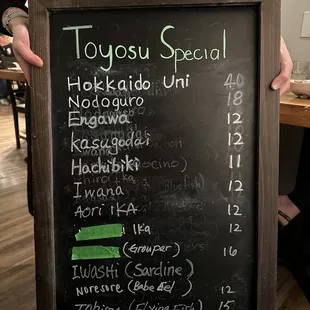 Toyosu Special
Hokkaido Uni 40
Nodoguro 18
Engawa 12
Kasugodai 12
Hachibiki 11
Iwana 12
Aori IKA 12
Ika 12
(Grouper) 16
IWASHI (Sardine)
Noresore (Babe Eel) 12
Tobiuo (Flying Fish) 15